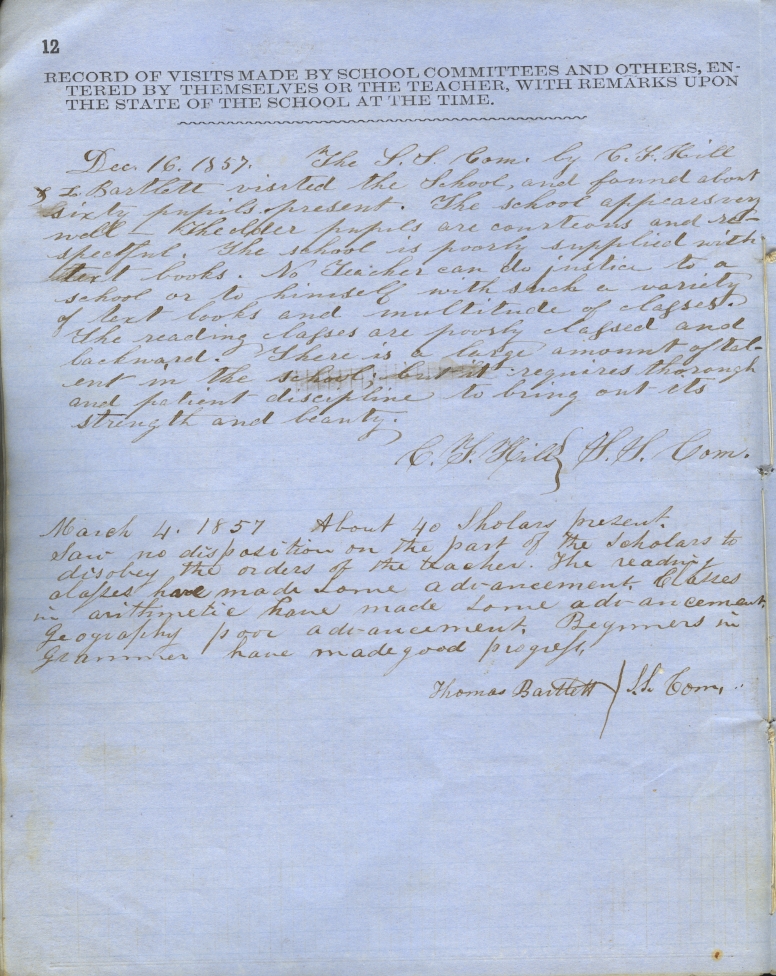 12
RECORD OF VISITS MADE BY SCHOOL COMMITTEES AND OTHERS, EN-
TERED BY THEMSELVES OR THE TEACHER, WITH REMARKS UPON
THE STATE OF THE SCHOOL AT THE TIME.
Dec. 16. 1857. The S. S. Com. by C. F. Hill
& T. Bartlett visited the School, and found about
sixty pupils present. The school appears very
well – The older pupils are courteous and re-
spectful. The school is poorly supplied with
text books. No Teacher can do justice to a
school or to himself with such a variety
of text books and multitude of classes.
The reading classes are poorly classed and
backward. There is a large amount of tal-
ent in the school; but it requires thorough
and patient discipline to bring out its
strength and beauty.
C. F. Hill } S. S. Com.
March 4. 1857 About 40 Sholars present.
Saw no disposition on the part of the Scholars to
disobey the orders of the teacher. The reading
classes have made some advancement. Classes
in arithmetic have made some advancement.
Geography poor advancement. Beginners in
Grammer have made good progress.
Thomas Bartlett } S.S. Com.